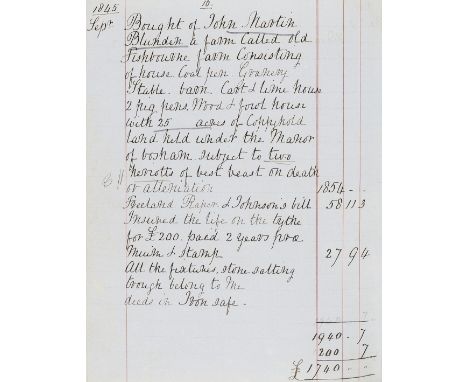 1845 10
Sepr Bought of John Martin
Blunden a farm Called old
Fishbourne farm Consisting
of house Coal pen Granery
Stable. barn. Cart & lime house
2 pig pens. Wood & fowl house
with 25 acres of Coppyhold
land held under the Manor
of bosham subject to two
herriotts of best beast on death
or attenation 1854 - -
Raper & Johnson's bill 58 11 3
Insured the life on the tythe
for £200. paid 2 years pre
mium & stamp 27 9 4
All the fixtures, stone salting
trough belong to me
deeds in Iron safe.
1940 - 7
200 7
£ 1740 - -